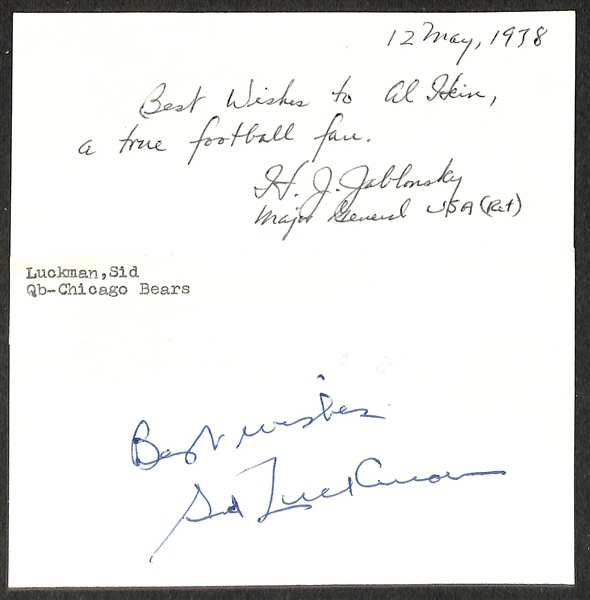 12 May, 1978
Best Wishes to Al Hein,
a true football fan.
H. J. Jablonsky
Major General USA (Ret)
Luckman,Sid
Qb-Chicago Bears
Best wishes
Sid Luckman